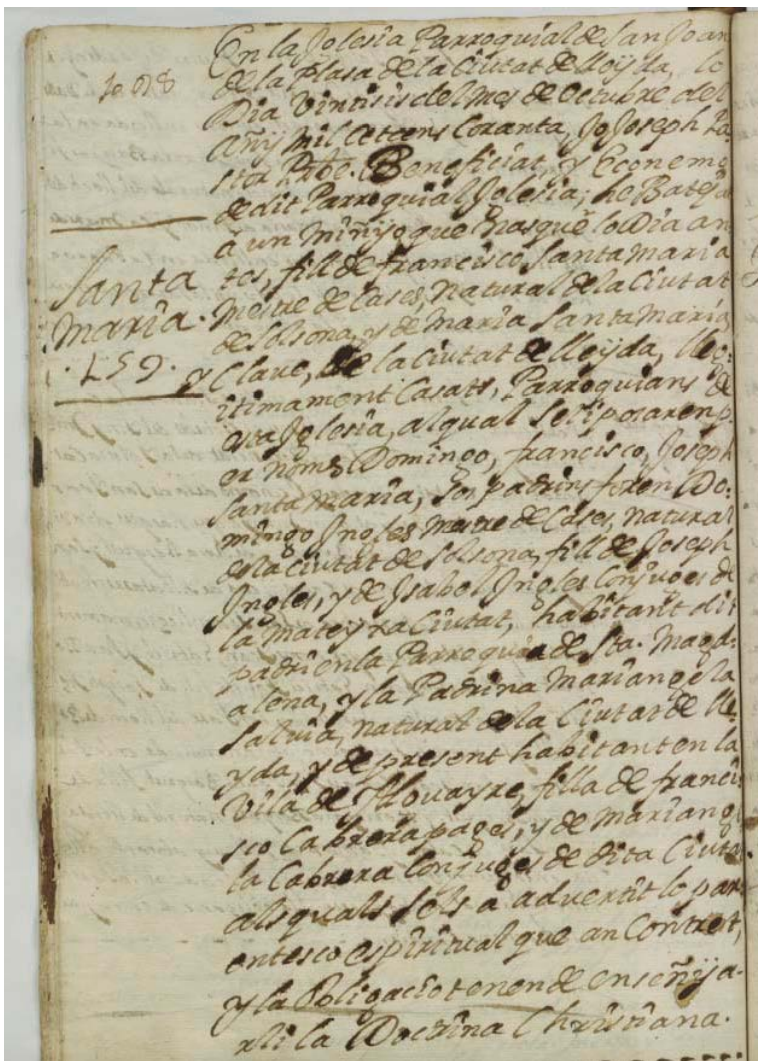 En la Iglesia Parroquial de San Joan
de la Plasa de la Ciutat de lleyda, lo
Dia Vintisis del mes de Octubre del
Añy Mil Cetcens Coranta, Jo Joseph Pa-
stor Pbre. Beneficiat, y Economo
de dit Parroquial Iglesia; he Batejat
à un Miñyo que nasqué lo Dia an
tes, fill de francisco Santa Maria
Santa
Maria.
. L59 .
Mestre de Cases, Natural de la Ciutat
de Solsona, y de Maria Santa Maria,
y Clave, de la Ciutat de lleyda, lleg:
itimament Casats, Parroquians de
esta Iglesia, al qual se li posaren p.
er noms Domingo, francisco, Joseph
Santa Maria, Sos padrins foren Do:
mingo Ingles Mestre de Cases, natural
de la Ciutat de Solsona, fill de Joseph
Ingles, y de Isabel Ingles Conjuges de
la mateyxa Ciutat, habitant dit
padri en la Parroquia de Sta. Magd-
alena, y la Padrina Mariangela
Salvia, natural de la Ciutat de lle
yda, y de present habitant en la
Vila de, filla de franci
sco Cabrera pages, y de Mariange
la Cabrera Conjuges de dita Ciutat
als quals sels à advertit lo par
entesco espiritual que an Contret,
y la Obligacio tenen de enseñya-
rli la Doctrina Christiana.